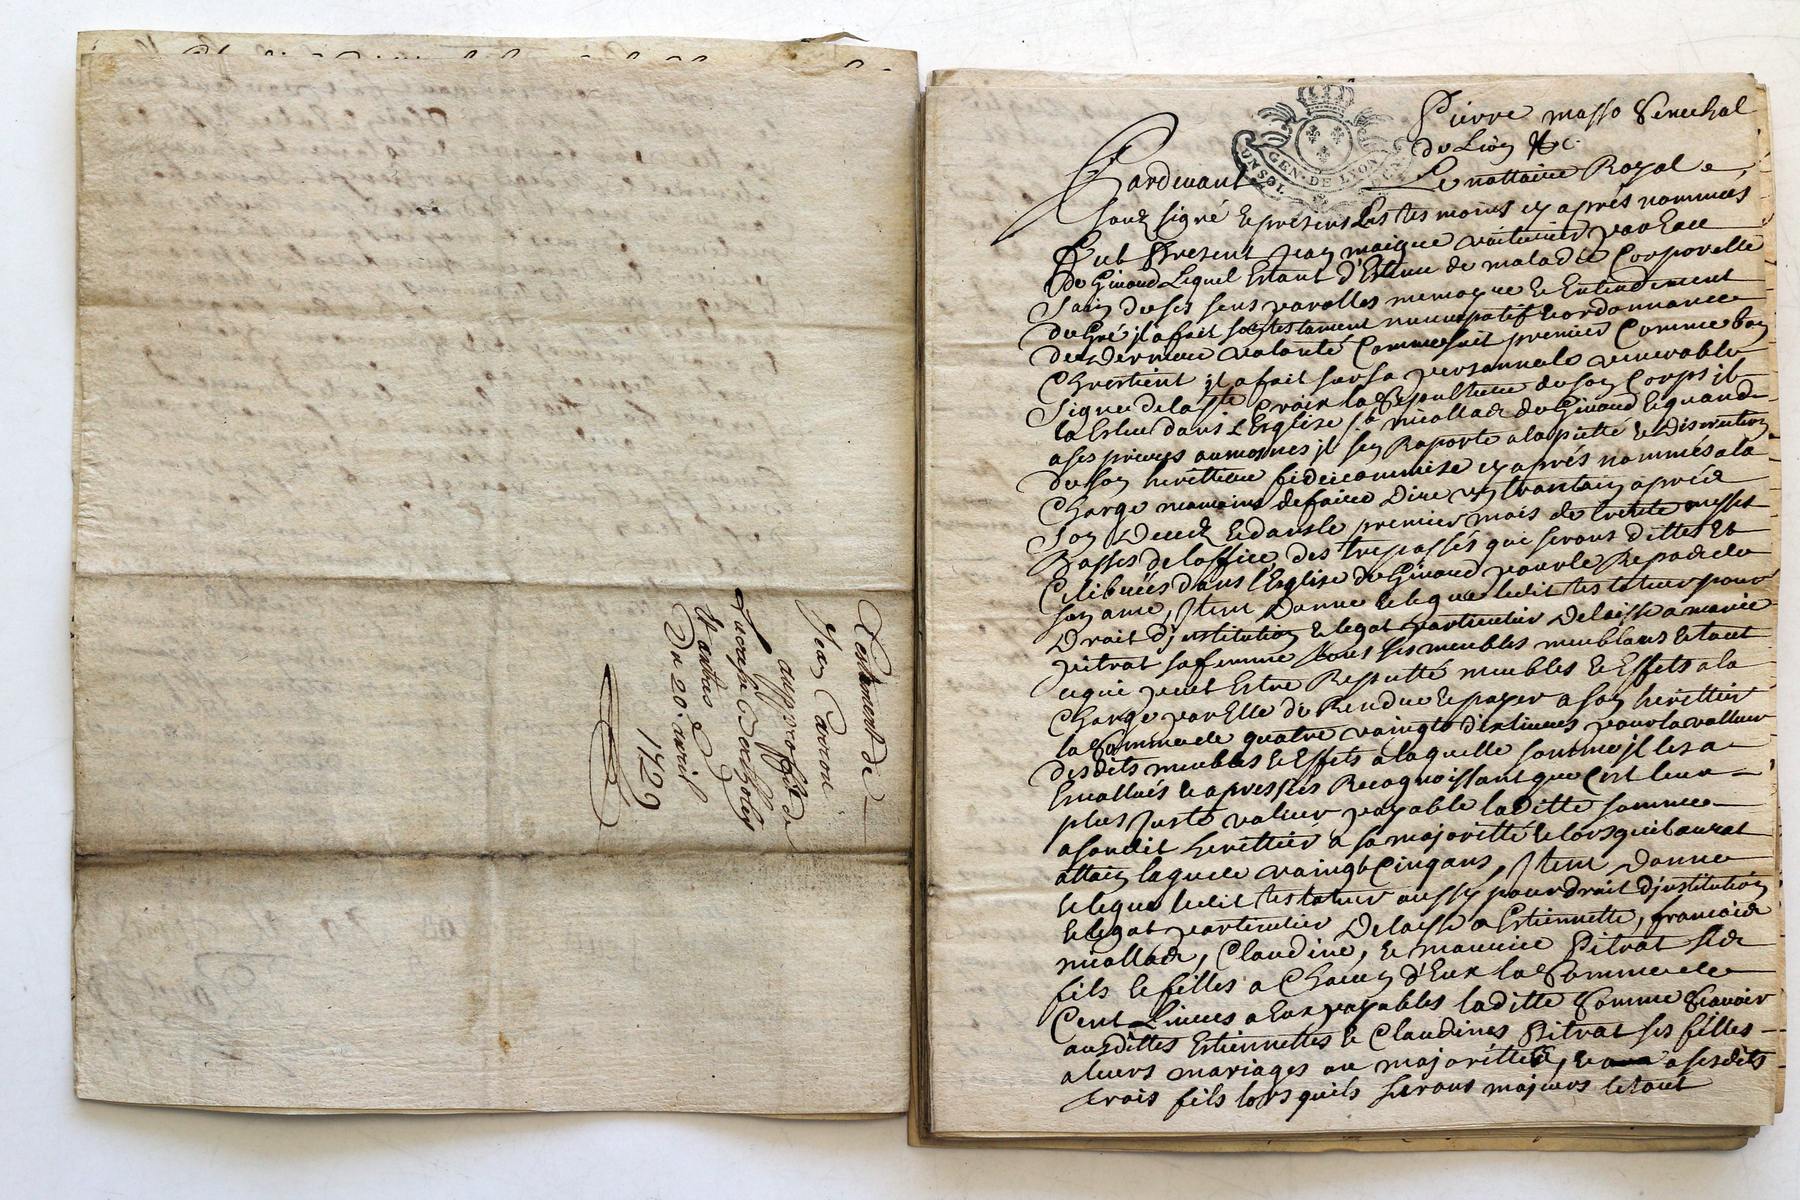 Testament de
Jean Carron
au proffit de
Lucresse
Du 20. avril
1729
UN SOL
GEN. DE LYON
Pierre masso Senechal
de Lion &c.
Pardevant Le nottaire Royal
souz signé & presens Les tesmoins cy aprés nommés
fut Present Jean voiturier par Eau
de Givord Lequel Estant de maladie Corporelle
Sain de ses sens parolles memoyre & Entendement
de Gré il a fait son testament nuncupatif & ordonnance
de derniere volonté Comme suit premier Comme bon
Chrestient il a fait sur sa personne le venerable
Signe de la ste Croix la Sepulture de son Corps il
la Esleu dans L'Esglise st nicollas de Givord & quand
a ses prieres aumosnes il sen Raporte a la pietté & discretion
de son herittiere fideicommise cy aprés nommés a la
Charge neamoins de faire Dire un trantain aprés
Son Decez & dans le premier mois de trente messes
Basses de loffice des trespassés que serons dittes &
Celebrées dans l'Esglise de Givord pour le Repos de
son ame, Item Donne & legue ledit testateur pour
Droit d'institution & legat particulier Delaisse a marie
pitrat sa femme tous ses meubles meublans & tout
ce qui peut Estre Reputté meubles & Effets a la
Charge par Elle de Rendre & payer a son herittier
la Somme de quatre vaingts dix livres pour la valleur
desdits meubles & Effets a laquelle somme il les a
Evallués & apressiés Recognoissant que C'est leur
plus Juste valeur payable laditte somme
a sondit herittier a sa majoritté & lorsquil aurat
attain laguee vaingt Cinq ans, Item Donne
& legue ledit testateur aussy pour droit d'institution
& legat particulier Delaisse a Estiennette, francois
nicollas, Claudine, & maurice Pitrat ses
fils & filles a Chacun d'Eux la Somme de
Cent Livres a Eux payables laditte Somme Scavoir
ausdittes Estiennettes & Claudines Pitrat ses filles
a leurs mariages ou majorittés, & a sesdits
trois fils lors quils serons majeurs le tout